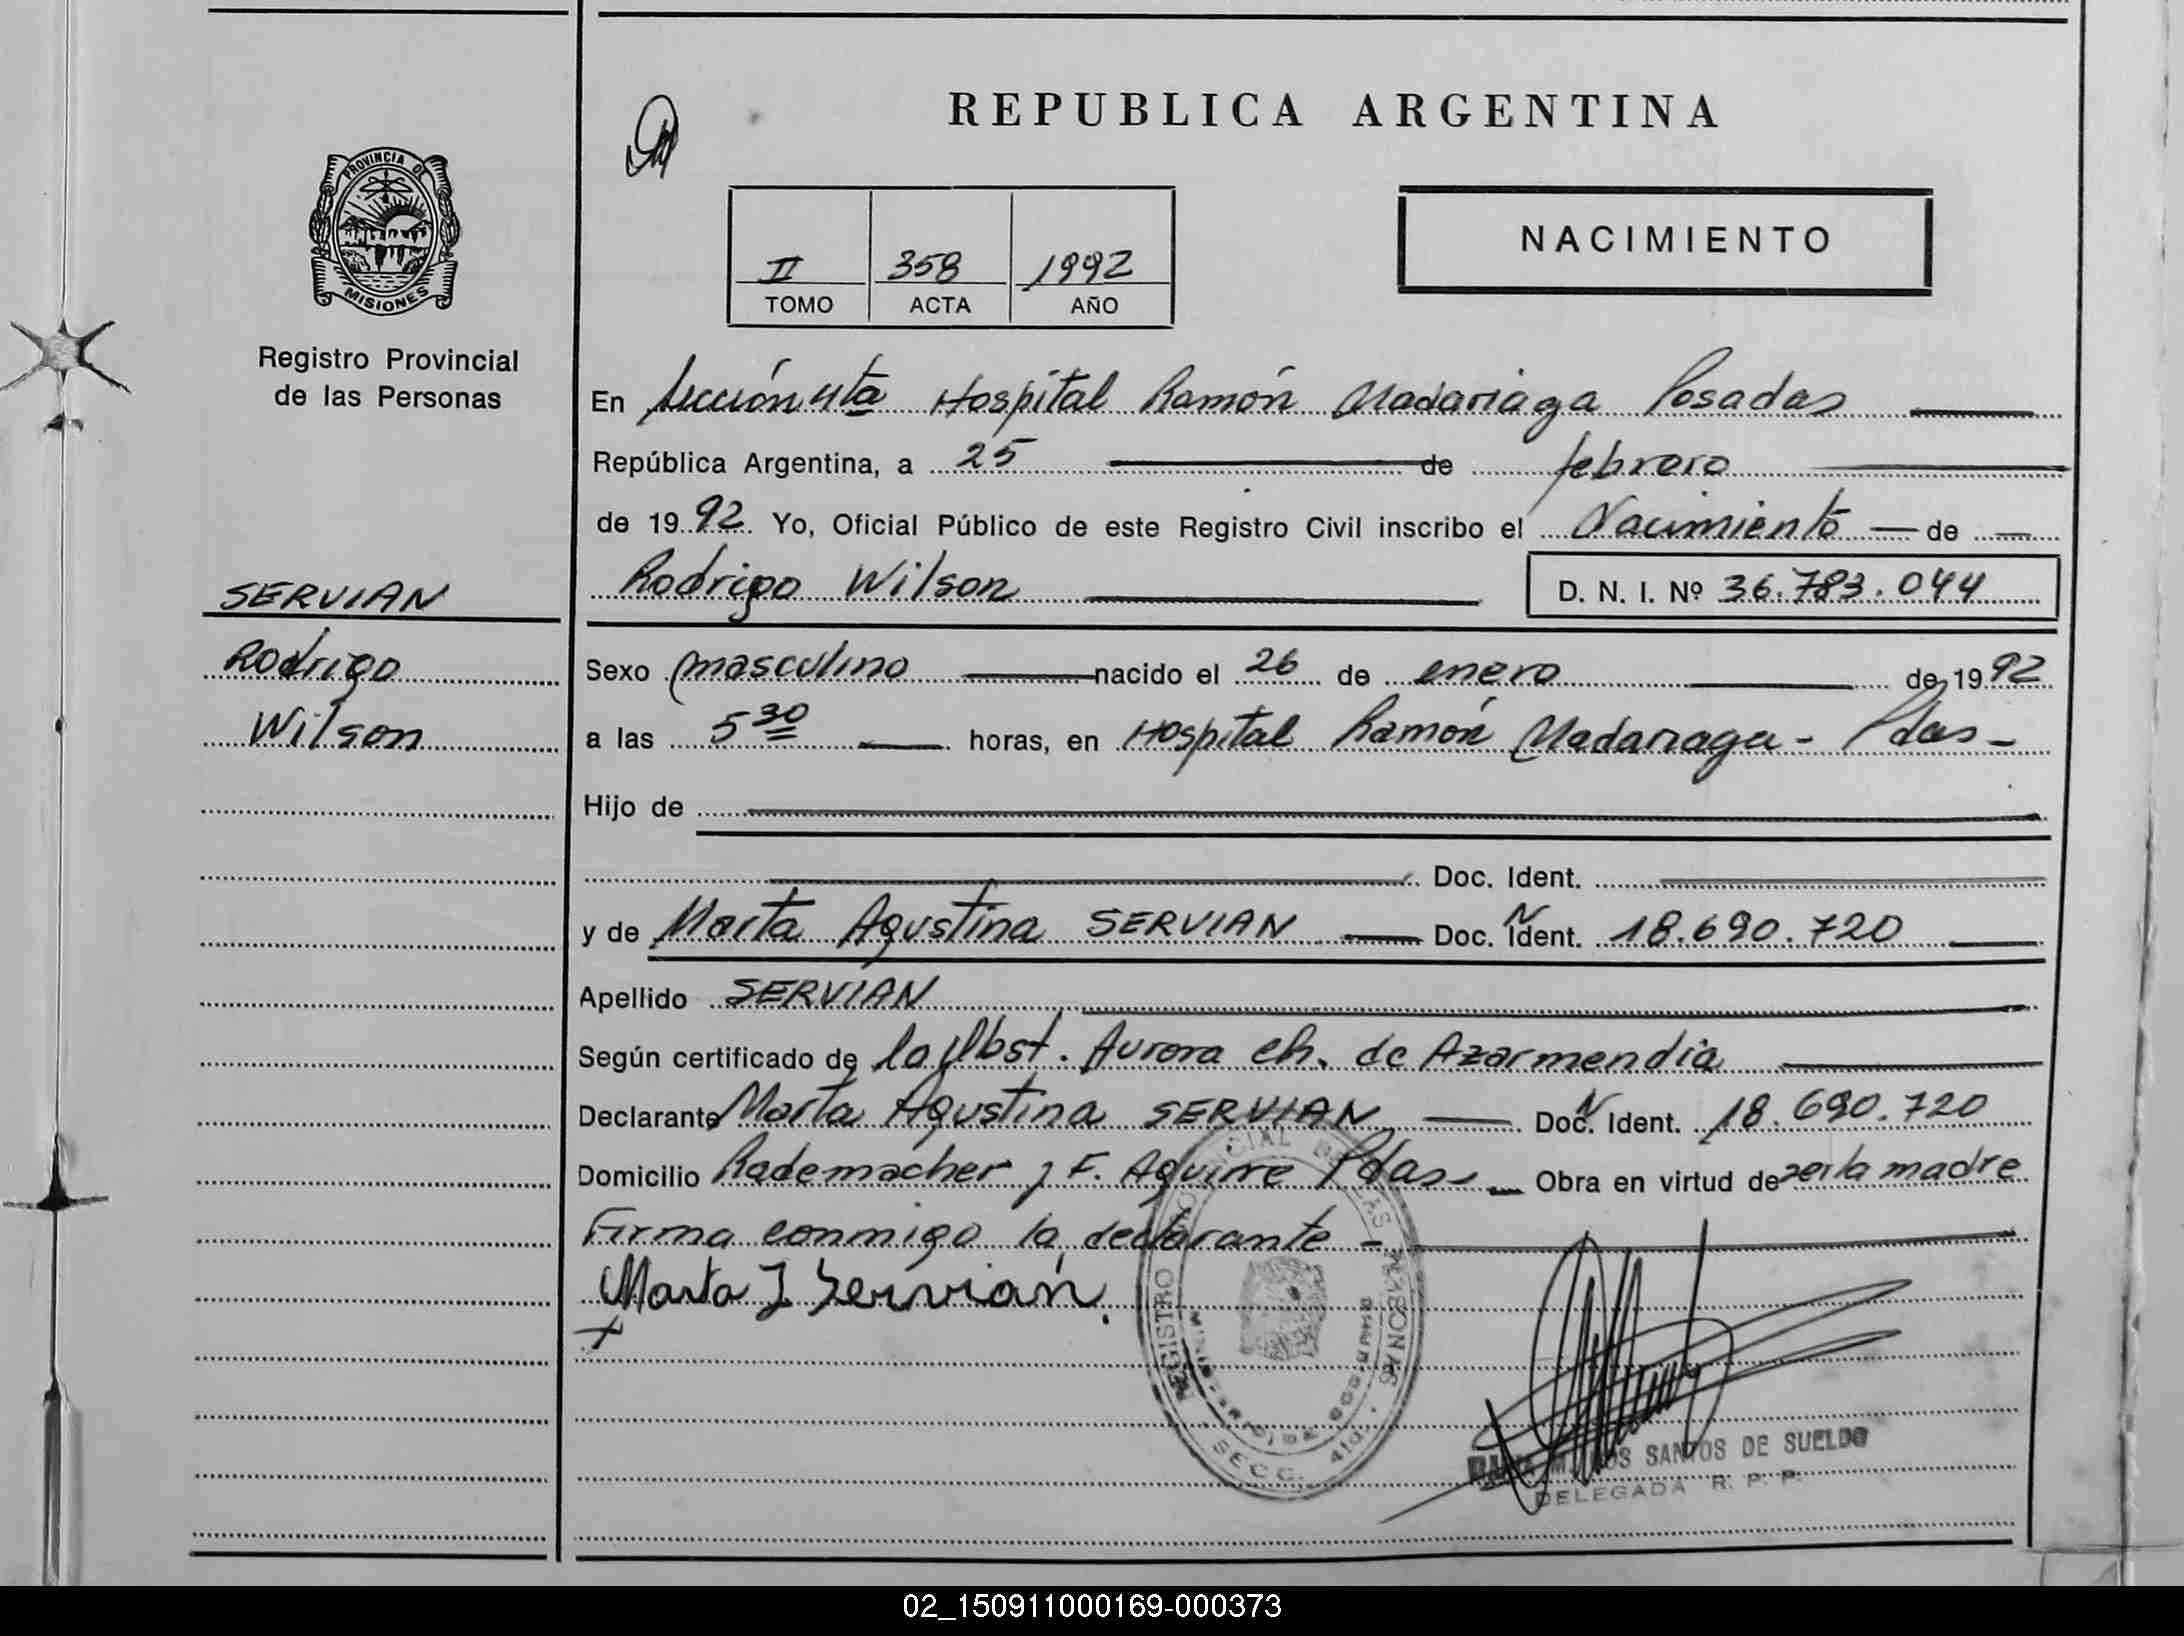 REPUBLICA ARGENTINA
PROVINCIA DE
MISIONES
Registro Provincial
de las Personas
II 358 1992
TOMO ACTA AÑO
NACIMIENTO
En Sección 4ta Hospital Ramón Madariaga Posadas
República Argentina, a 25 de febrero
de 1992 Yo, Oficial Público de este Registro Civil inscribo el Nacimiento de
Rodrigo Wilson D. N. I. Nº 36.783.044
SERVIAN
Rodrigo
Wilson
Sexo masculino nacido el 26 de enero de 1992
a las 5 30 horas, en Hospital Ramón Madariaga - Pdas -
Hijo de
Doc. Ident.
y de Marta Agustina SERVIAN Doc. N Ident. 18.690.720
Apellido SERVIAN
Según certificado de la Obst. Aurora Ch. de Azarmendia
Declarante Marta Agustina SERVIAN Doc. N Ident. 18.690.720
Domicilio Rademacher y F. Aguirre Pdas - Obra en virtud de ser la madre
Firma conmigo la declarante -
Marta Servián.
REGISTRO PROVINCIAL DE LAS PERSONAS
MINISTERIO DE GOBIERNO
SECC. 4ta.
SANTOS DE SUELDO
DELEGADA R. P. P.
02_150911000169-000373